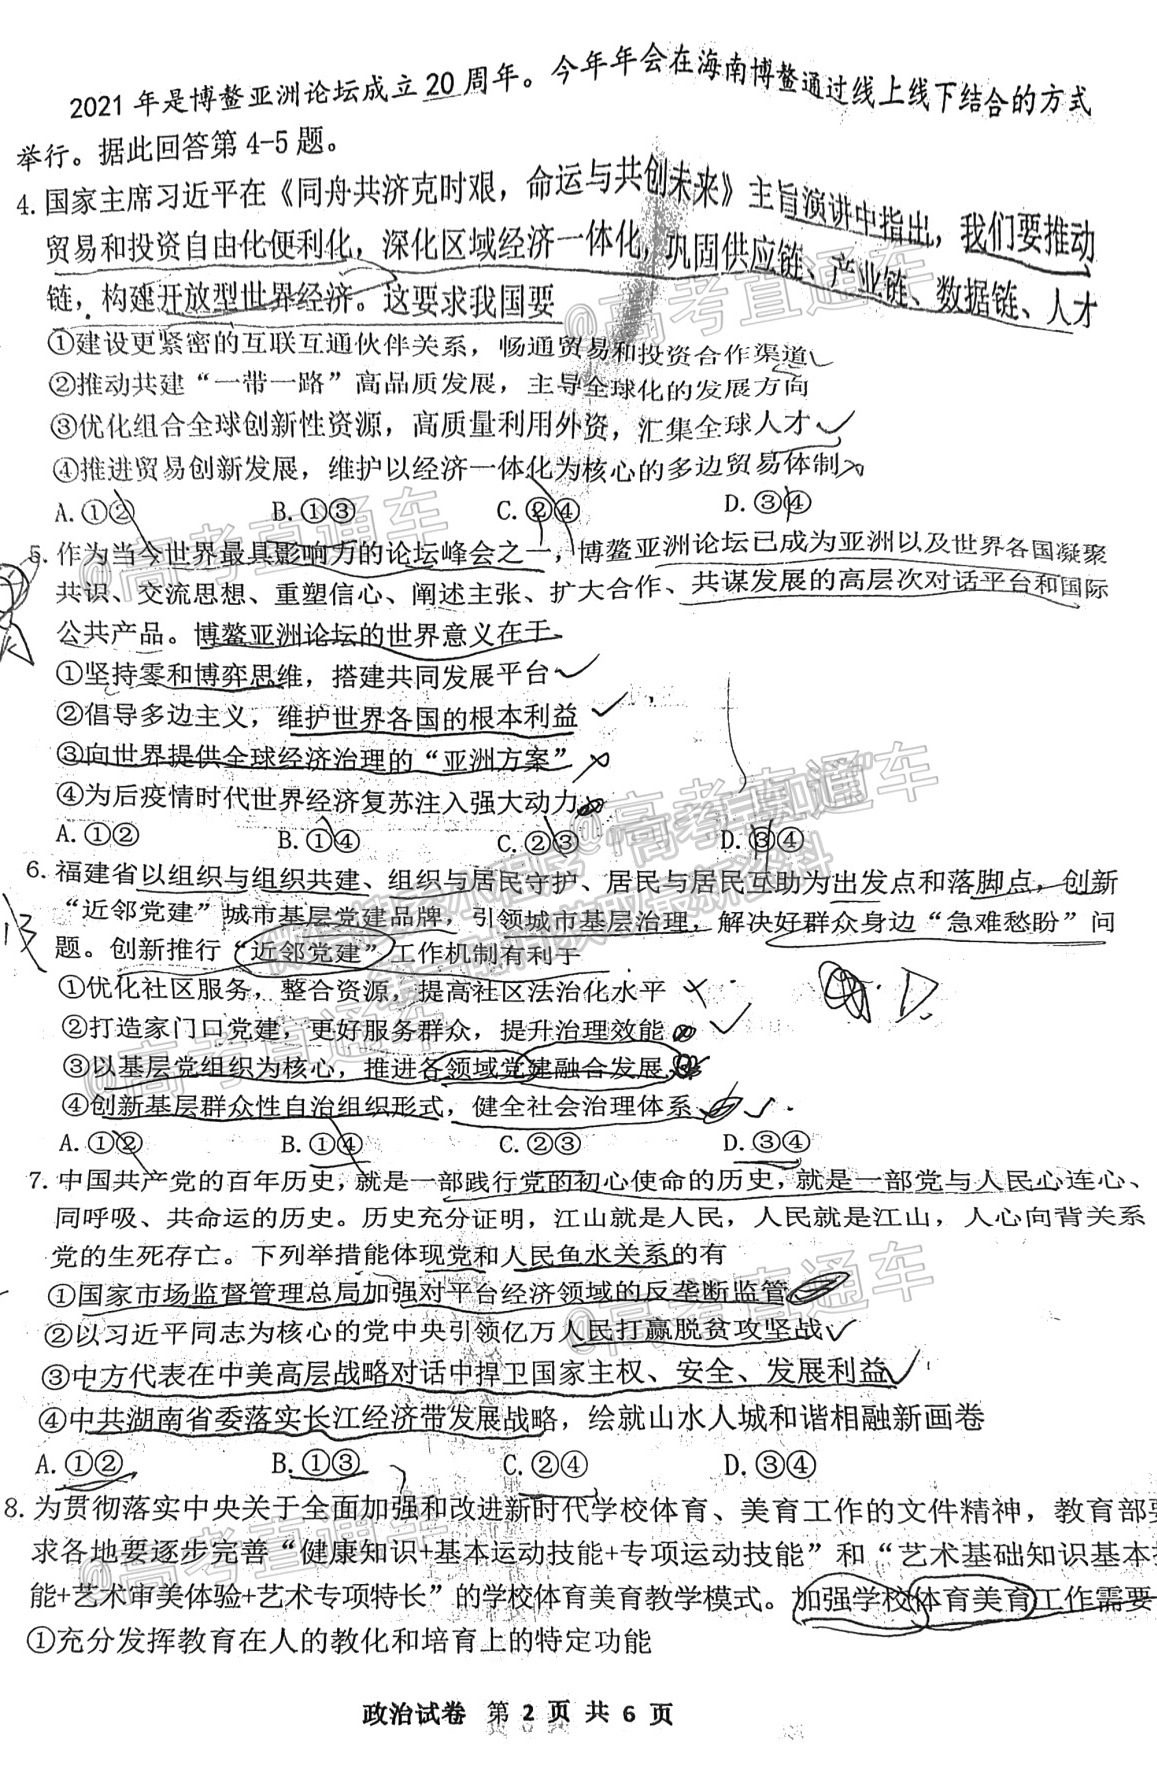 2021年是博鳌亚洲论坛成立20周年。今年年会在海南博鳌通过线上线下结合的方式
举行。据此回答第4-5题。
4.国家主席习近平在《同舟共济克时艰，命运与共创未来》主旨演讲中指出，我们要推动
贸易和投资自由化便利化，深化区域经济一体化，巩固供应链、产业链、数据链、人才
链，构建开放型世界经济。这要求我国要
①建设更紧密的互联互通伙伴关系，畅通贸易和投资合作渠道
②推动共建“一带一路”高品质发展，主导全球化的发展方向
③优化组合全球创新性资源，高质量利用外资，汇集全球人才
④推进贸易创新发展，维护以经济一体化为核心的多边贸易体制
A.①② B.①③ C.②④ D.③④
5.作为当今世界最具影响力的论坛峰会之一，博鳌亚洲论坛已成为亚洲以及世界各国凝聚
共识、交流思想、重塑信心、阐述主张、扩大合作、共谋发展的高层次对话平台和国际
公共产品。博鳌亚洲论坛的世界意义在于
①坚持零和博弈思维，搭建共同发展平台
②倡导多边主义，维护世界各国的根本利益
③向世界提供全球经济治理的“亚洲方案”
④为后疫情时代世界经济复苏注入强大动力
A.①② B.①④ C.②③ D.③④
6.福建省以组织与组织共建、组织与居民守护、居民与居民互助为出发点和落脚点，创新
“近邻党建”城市基层党建品牌，引领城市基层治理，解决好群众身边“急难愁盼”问
题。创新推行“近邻党建”工作机制有利于
①优化社区服务，整合资源，提高社区法治化水平
②打造家门口党建，更好服务群众，提升治理效能
③以基层党组织为核心，推进各领域党建融合发展
④创新基层群众性自治组织形式，健全社会治理体系
A.①② B.①④ C.②③ D.③④
7.中国共产党的百年历史，就是一部践行党的初心使命的历史，就是一部党与人民心连心、
同呼吸、共命运的历史。历史充分证明，江山就是人民，人民就是江山，人心向背关系
党的生死存亡。下列举措能体现党和人民鱼水关系的有
①国家市场监督管理总局加强对平台经济领域的反垄断监管
②以习近平同志为核心的党中央引领亿万人民打赢脱贫攻坚战
③中方代表在中美高层战略对话中捍卫国家主权、安全、发展利益
④中共湖南省委落实长江经济带发展战略，绘就山水人城和谐相融新画卷
A.①② B.①③ C.②④ D.③④
8.为贯彻落实中央关于全面加强和改进新时代学校体育、美育工作的文件精神，教育部要
求各地要逐步完善“健康知识+基本运动技能+专项运动技能”和“艺术基础知识基本技
能+艺术审美体验+艺术专项特长”的学校体育美育教学模式。加强学校体育美育工作需要
①充分发挥教育在人的教化和培育上的特定功能
政治试卷 第2页共6页
@高考直通车
@高考直通车
@高考直通车
@高考直通车
@高考直通车
@高考直通车